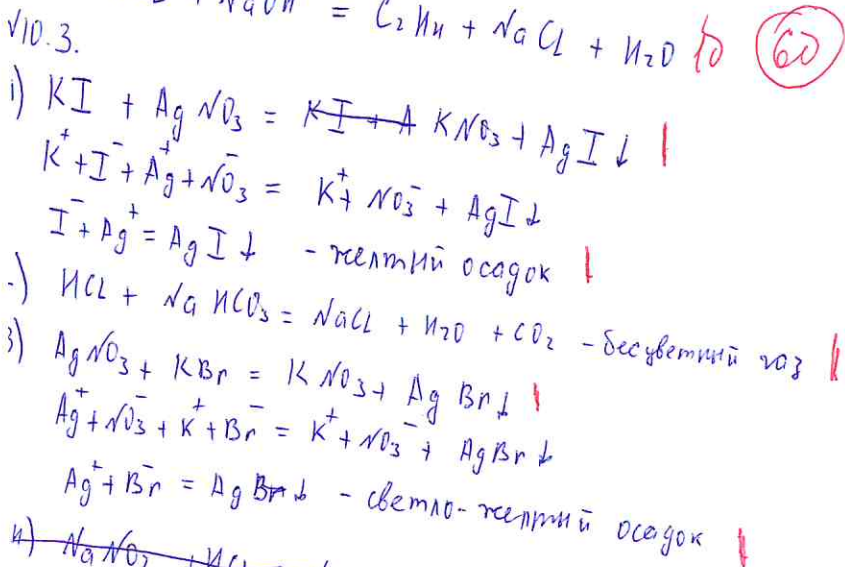 + NaOH = C2H4 + NaCl + H2O 10 60
√10.3.
1) KI + AgNO3 = KNO3 + AgI↓
K⁺ + I⁻ + Ag⁺ + NO3⁻ = K⁺ + NO3⁻ + AgI↓
I⁻ + Ag⁺ = AgI↓ - желтый осадок
-) HCl + NaHCO3 = NaCl + H2O + CO2 - бесцветный газ
3) AgNO3 + KBr = KNO3 + AgBr↓
Ag⁺ + NO3⁻ + K⁺ + Br⁻ = K⁺ + NO3⁻ + AgBr↓
Ag⁺ + Br⁻ = AgBr↓ - светло-желтый осадок
4) NaNO2 + HCl